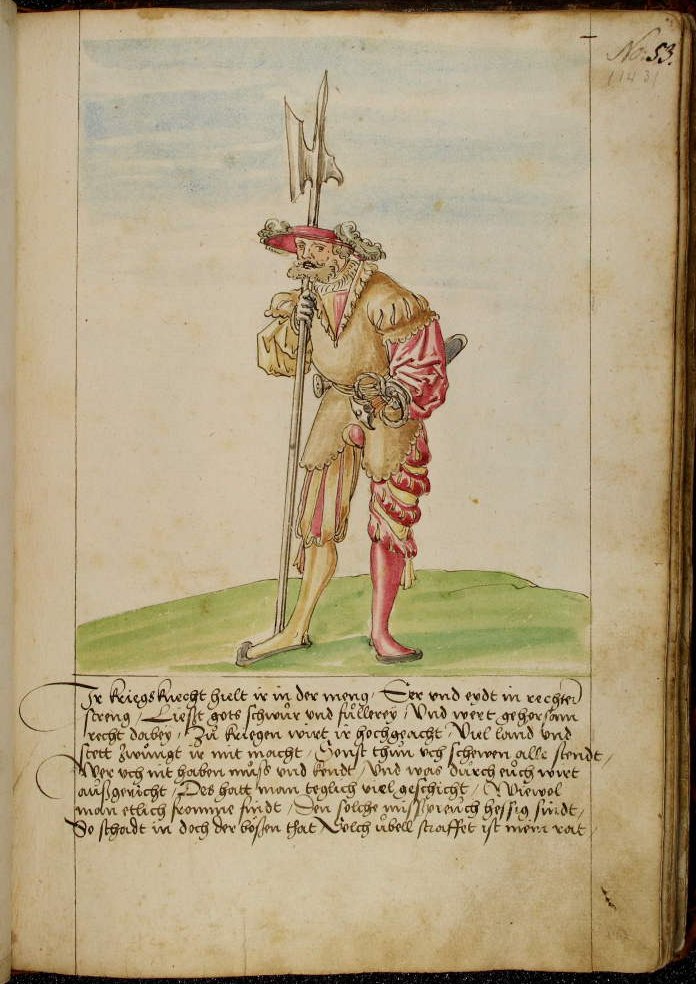 No: 53.
1143
Ir kriegs knecht hielt ir in der meng / Eer vnd eydt in rechter
streng / Liesst gots schwür vnd füllerey / Vnd wert gehorsam
recht dabey / Zu kriegen wirt ir hochgeacht / Viel land vnd
stett zwüngt ir mit macht / Sonst thun vch schewen alle stendt /
Wer vch nit haben muss vnd kendt / Vnd was durch euch wirt
aussgericht / Des hatt man teglich viel geschicht / Wiewol
man etlich fromme findt / Den solche missbreuch hessig sindt /
So schadt in doch der bösen that Solch übell straffet ist mein rat /